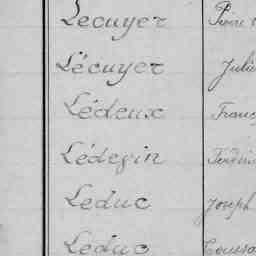 Lecuyer Pierre
Lécuyer Julie
Lédeux Franç
Lédezin
Leduc Joseph
Leduc Toussa